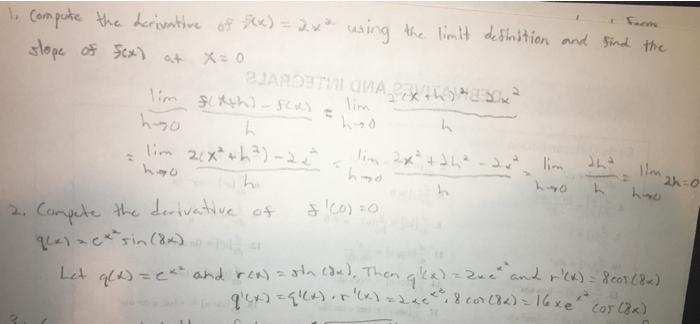 1. Compute the derivative of f(x) = 2x² using the limit definition and find the
slope of f(x) at x=0
DERIVATIVES AND INTEGRALS
lim h→0 f(x+h) - f(x) / h = lim h→0 2(x+h)² - 2x² / h
= lim h→0 2(x²+h²) - 2x² / h = lim h→0 2x² + 2h² - 2x² / h = lim h→0 2h² / h = lim h→0 2h = 0
2. Compute the derivative of f'(0) = 0
g(x) = e^x² sin(8x)
Let q(x) = e^x² and r(x) = sin(8x). Then q'(x) = 2xe^x² and r'(x) = 8cos(8x)
g'(x) = q'(x) · r'(x) = 2xe^x² · 8 cos(8x) = 16xe^x² cos(8x)